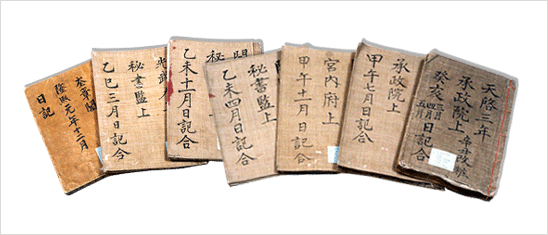 天啓三年
承政院上
癸亥三月四月五月日記合
承政院上
甲午七月日記合
宮內府上
甲午十一月日記合
秘書監上
乙未四月日記合
開
秘
乙未十一月日記合
光武
秘書監上
乙巳三月日記合
奎章閣
隆熙元年十二月
日記